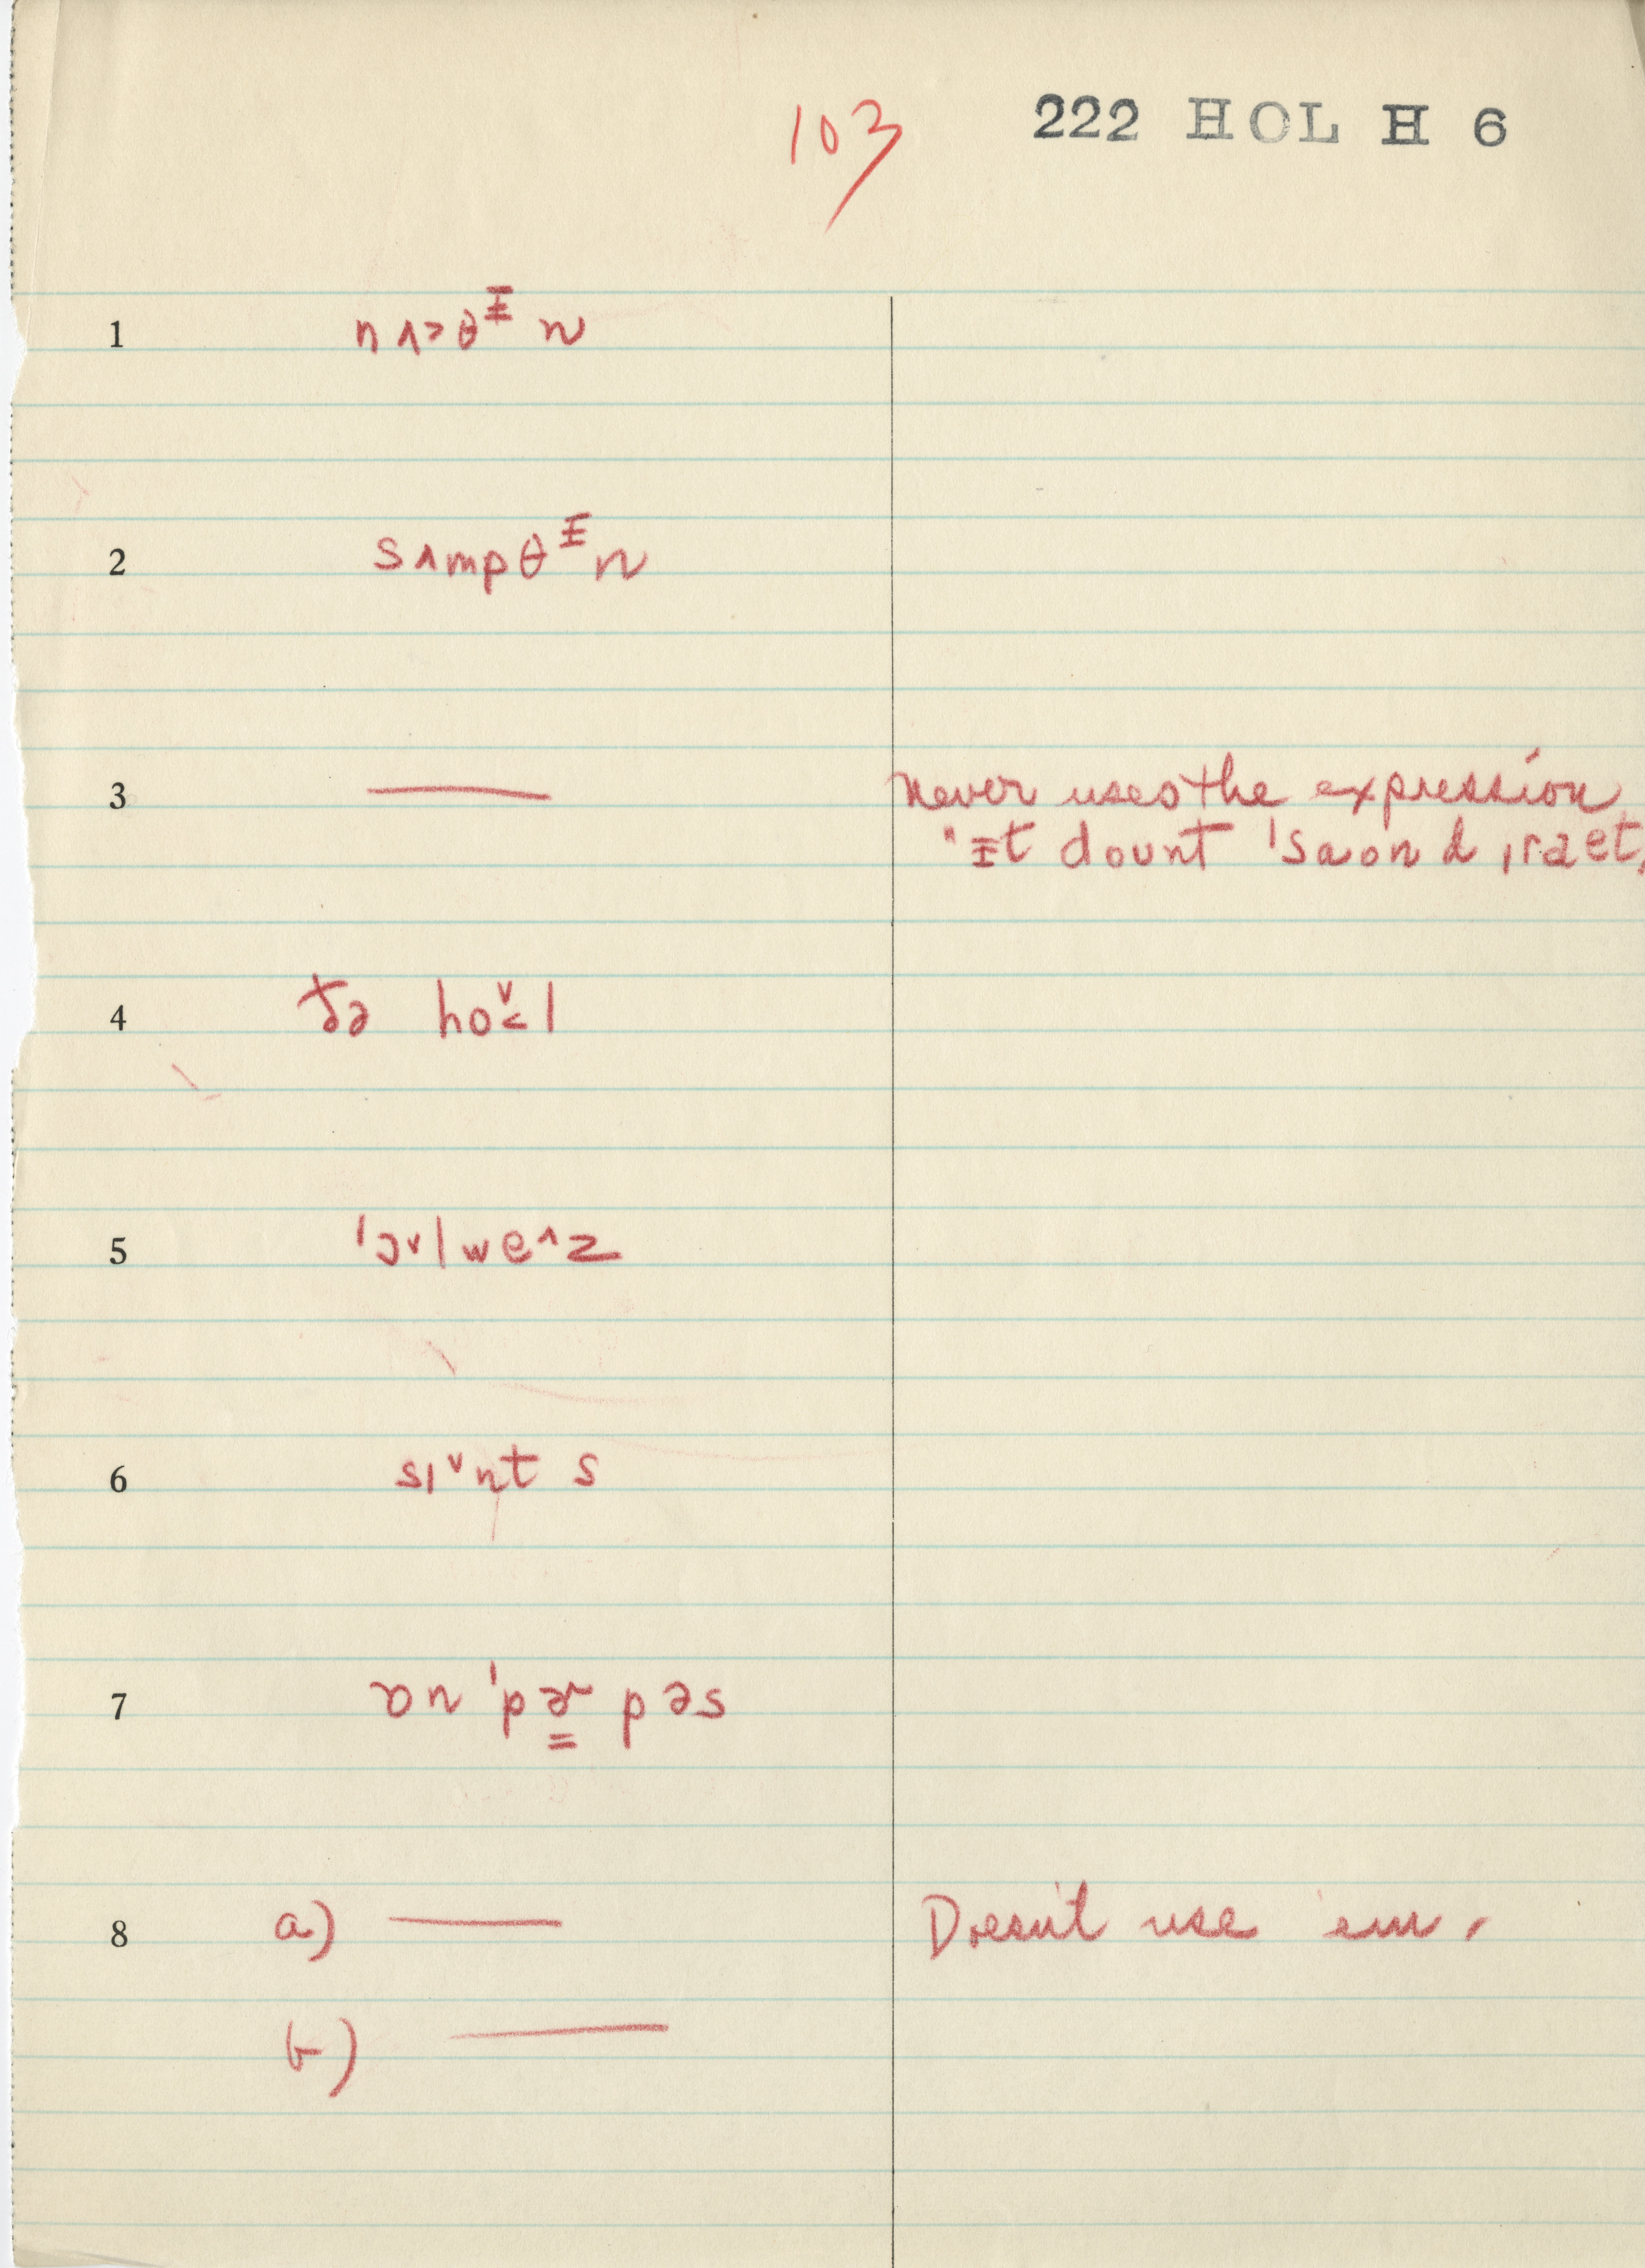 103 222 HOL H 6
1 nʌ˃θᵻn
2 sʌmpθᵻn
3 —— Never uses the expression
"ᵻt doʊnt ˈsaʊnd ˌraet,
4 ðə ho˅˂l
5 ˈɔ˅lwe^z
6 sɪ˅nts
7 ɒn ˈpɚ̳pəs
8 a) —— Doesn't use 'em.
b) ——